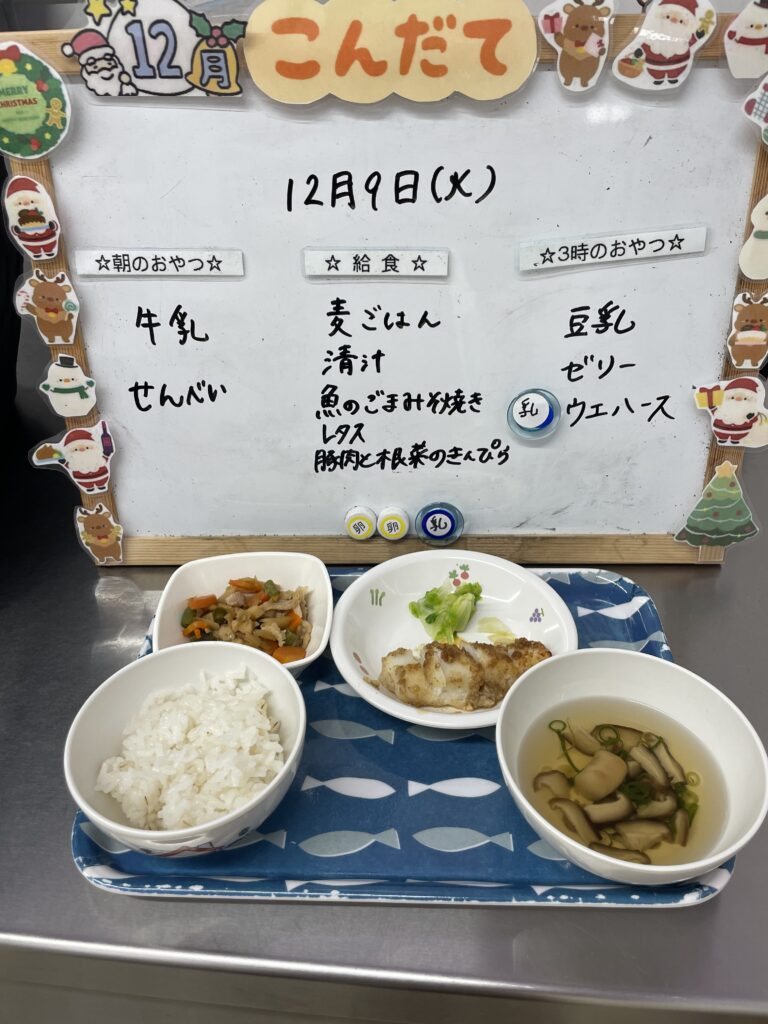 12月
こんだて
MERRY
CHRISTMAS
12月9日(火)
☆朝のおやつ☆
牛乳
せんべい
☆ 給 食 ☆
麦ごはん
清汁
魚のごまみそ焼き
レタス
豚肉と根菜のきんぴら
☆3時のおやつ☆
豆乳
ゼリー
乳 ウエハース
卵 卵 乳